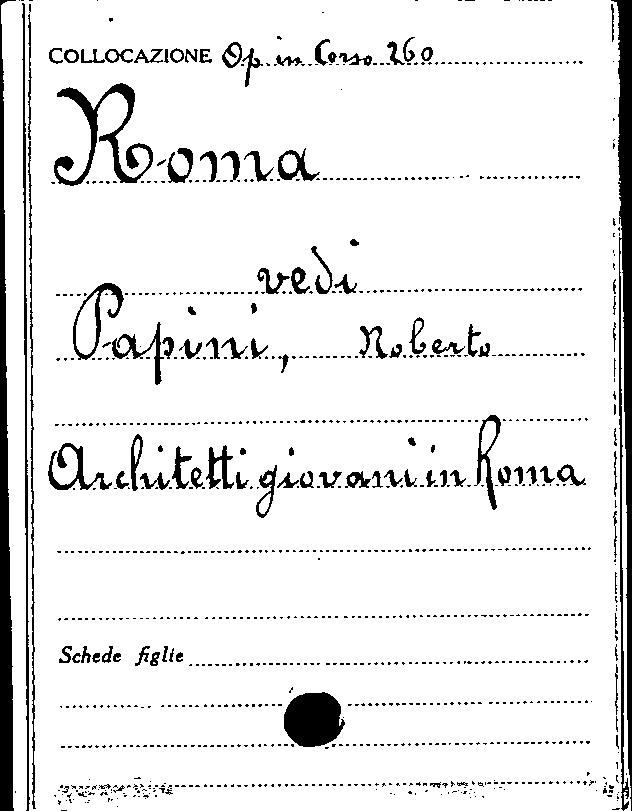 COLLOCAZIONE Op in Corso 260
Roma
vedi
Papini, Roberto
Architetti giovani in Roma
Schede figlie